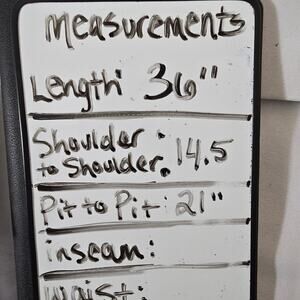 Measurements
Length: 36"
Shoulder
to Shoulder: 14.5
Pit to Pit: 21"
inseam:
Waist: